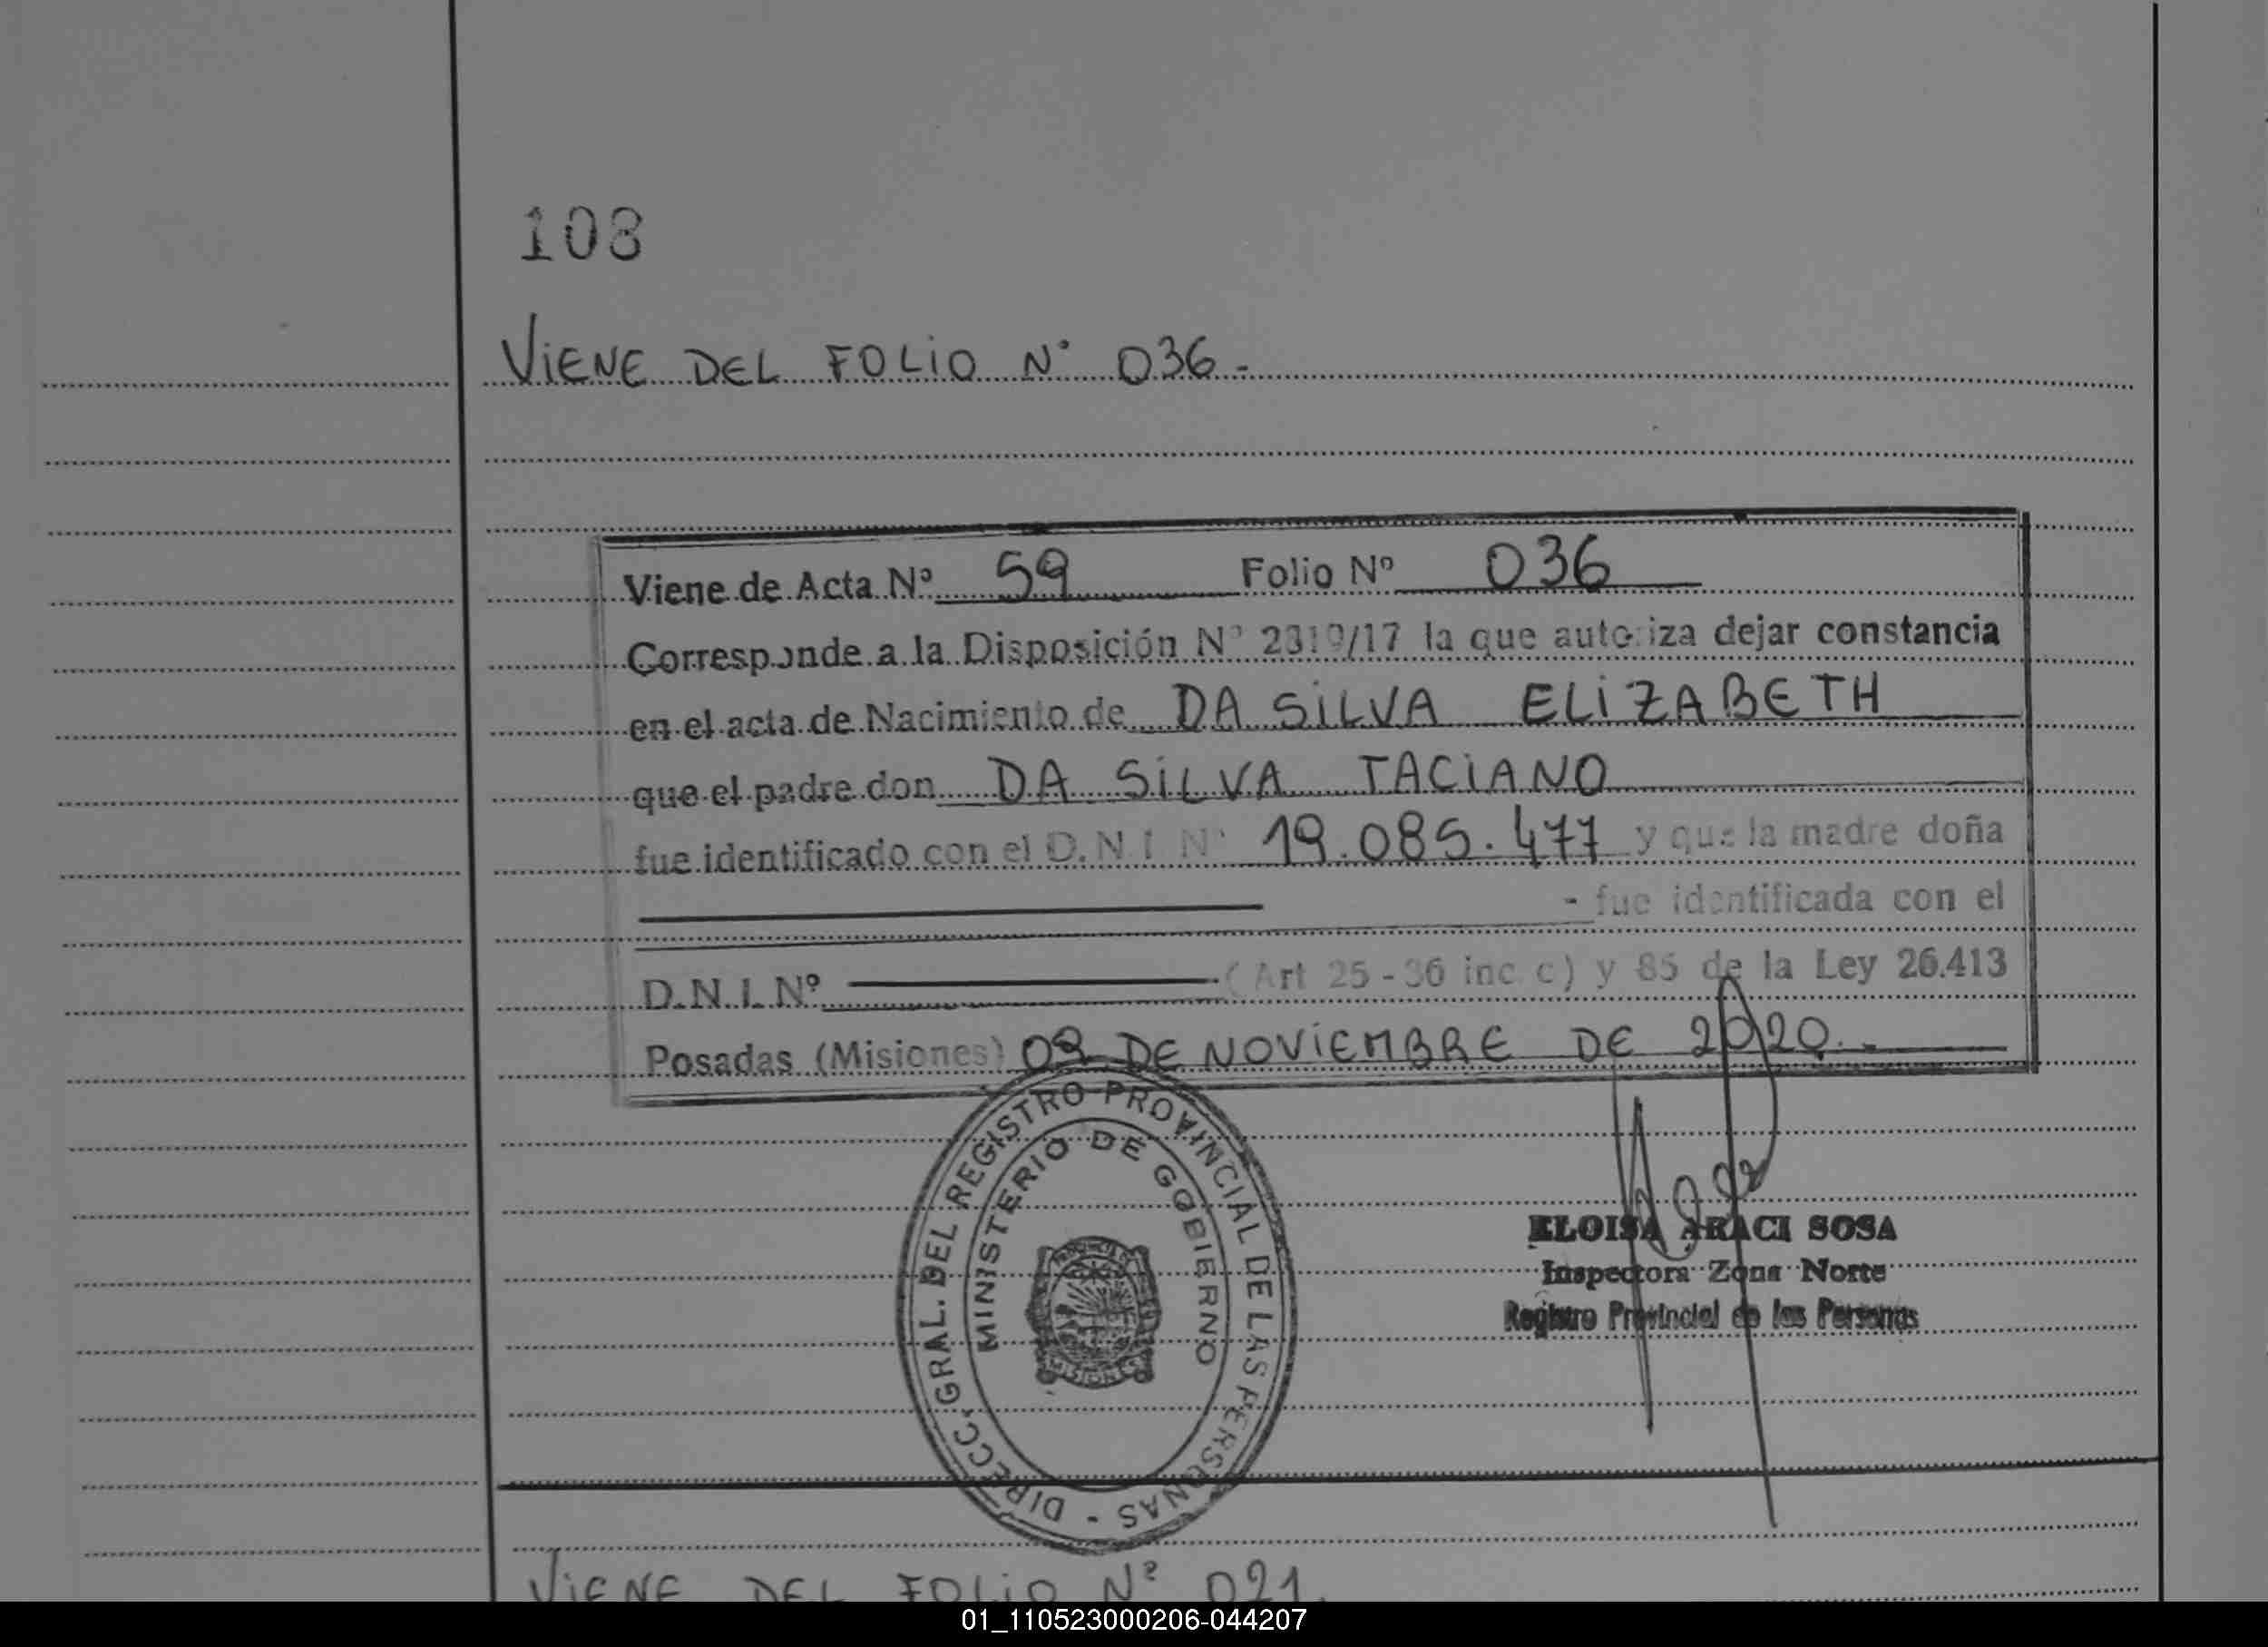 103
VIENE DEL FOLIO N° 036.-
Viene de Acta Nº 59 Folio Nº 036
Corresponde a la Disposición Nº 2319/17 la que autoriza dejar constancia
en el acta de Nacimiento de DA SILVA ELIZABETH
que el padre don DA SILVA TACIANO
fue identificado con el D.N.I. Nº 19.085.477 y que la madre doña
- fue identificada con el
D.N.I. Nº (Art 25 - 36 inc c) y 85 de la Ley 26.413
Posadas (Misiones) 09 DE NOVIEMBRE DE 2020.-
DIRECC. GRAL. DEL REGISTRO PROVINCIAL DE LAS PERSONAS -
MINISTERIO DE GOBIERNO
MISIONES
ELOISA ARACI SOSA
Inspectora Zona Norte
Registro Provincial de las Personas
VIENE DEL FOLIO Nº 021.
01_110523000206-044207